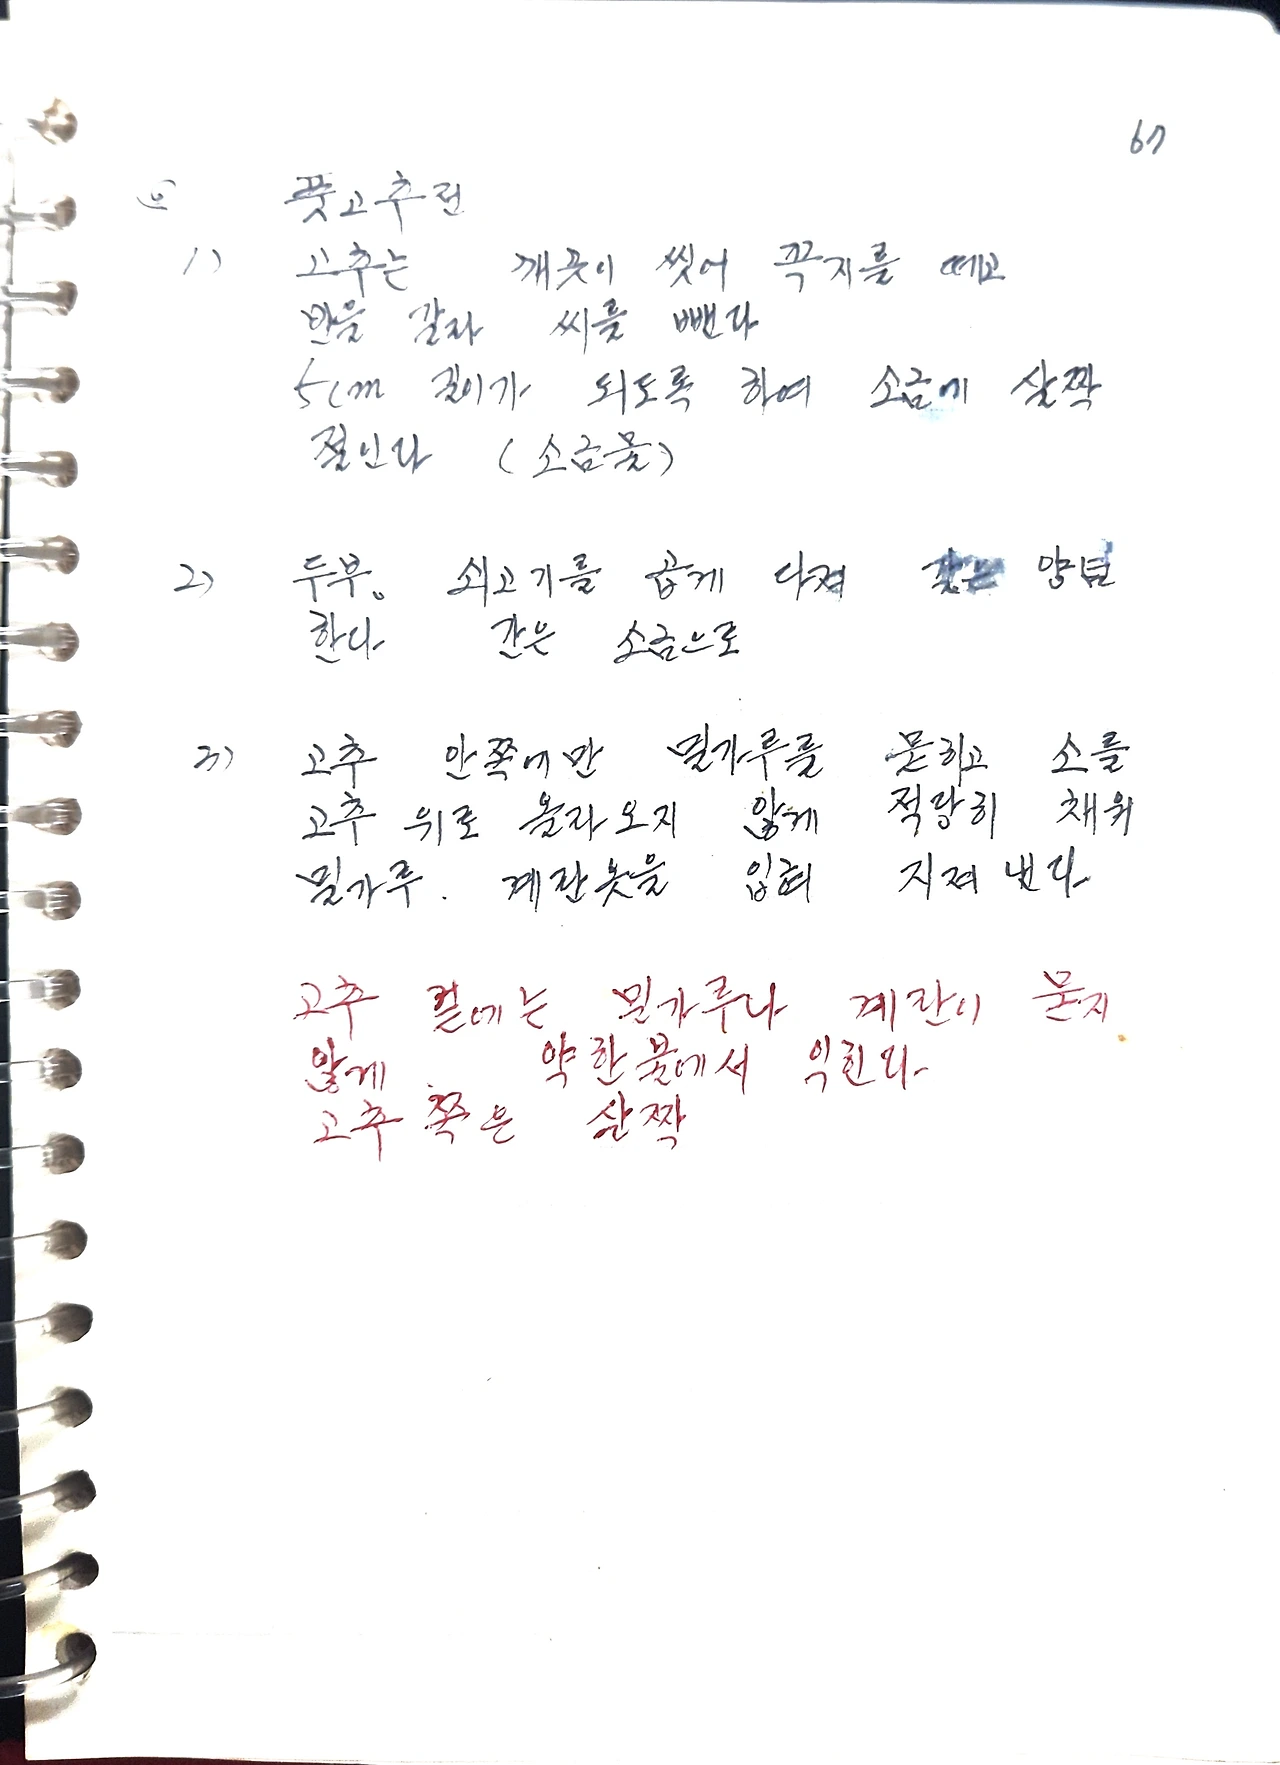 67
풋고추전
1) 고추는 깨끗이 씻어 꼭지를 떼고
반을 갈라 씨를 뺀다
5cm 길이가 되도록 하여 소금에 살짝
절인다 (소금물)
2) 두부. 쇠고기를 곱게 다져 양념
한다 간은 소금으로
3) 고추 안쪽에만 밀가루를 묻히고 소를
고추 위로 올라오지 않게 적당히 채워
밀가루. 계란옷을 입혀 지져 낸다
고추 겉에는 밀가루나 계란이 묻지
않게 약한불에서 익힌다.
고추쪽은 살짝